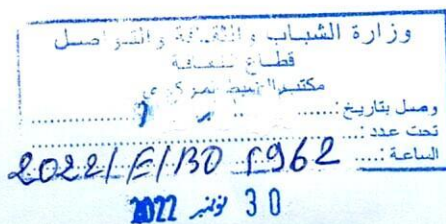 وزارة الشباب والثقافة والتواصل
قطاع الثقافة
مكتب الضبط المركزي
وصل بتاريخ:
تحت عدد:
2022/E/BO 5962
الساعة:
30 نونبر 2022